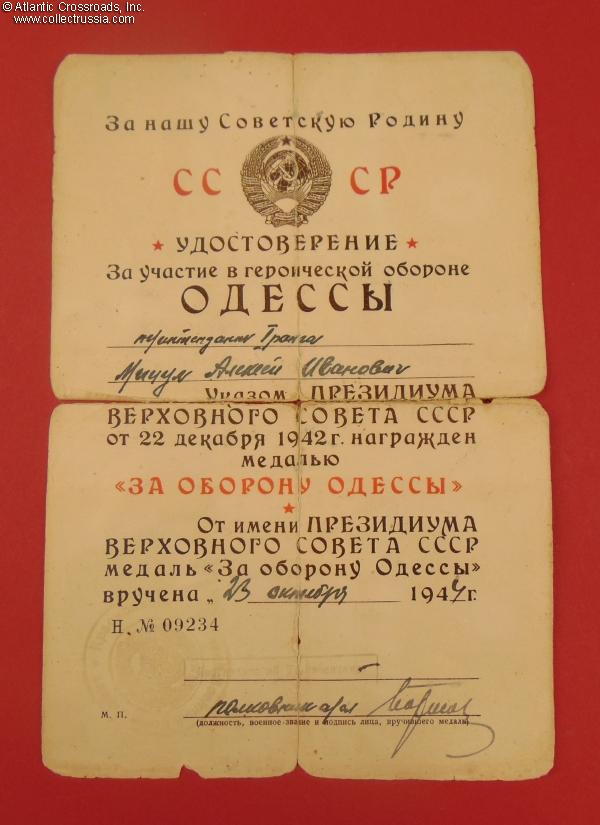 © Atlantic Crossroads, Inc.
www.collectrussia.com
За нашу Советскую Родину
СС СР
★ УДОСТОВЕРЕНИЕ ★
За участие в героической обороне
ОДЕССЫ
I ранга
Алексей Иванович
Указом ПРЕЗИДИУМА
ВЕРХОВНОГО СОВЕТА СССР
от 22 декабря 1942 г. награжден
медалью
«ЗА ОБОРОНУ ОДЕССЫ»
★
От имени ПРЕЗИДИУМА
ВЕРХОВНОГО СОВЕТА СССР
медаль «За оборону Одессы»
вручена „23 октября 1944 г.
Н. № 09234
полковник
М. П.
(должность, военное звание и подпись лица, вручившего медаль)